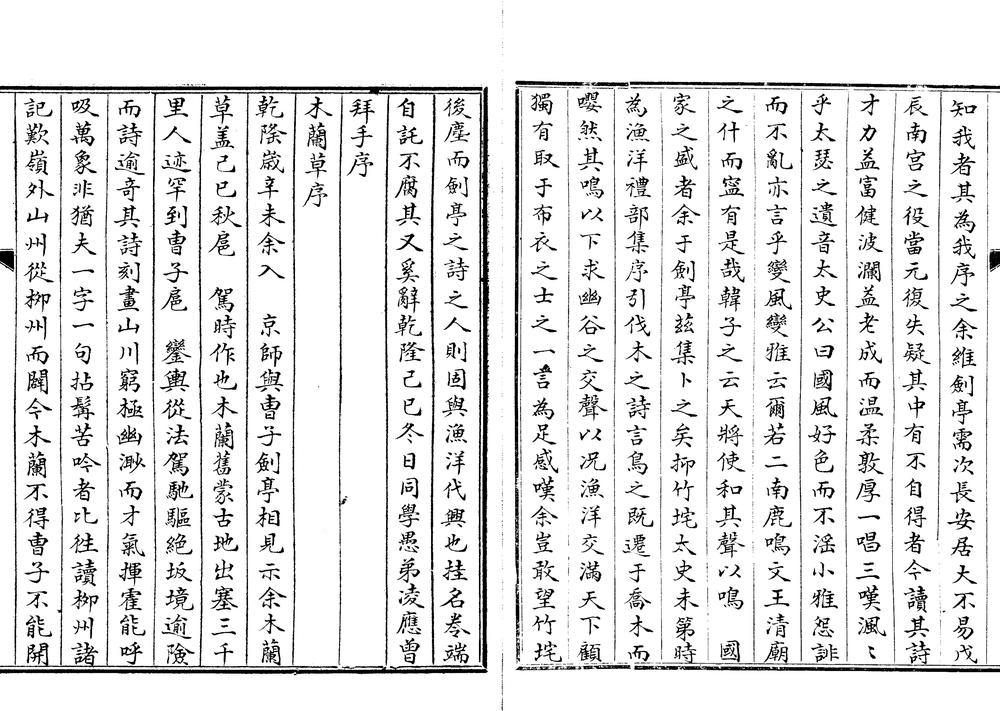 知我者其為我序之余維劍亭需次長安居大不易戊
辰南宮之役當元復失疑其中有不自得者今讀其詩
才力益富健波瀾益老成而温柔敦厚一唱三嘆渢〻
乎太瑟之遺音太史公曰國風好色而不淫小雅怨誹
而不亂亦言乎變風變雅云爾若二南鹿鳴文王清廟
之什而寧有是哉韓子之云天將使和其聲以鳴　國
家之盛者余于劍亭茲集卜之矣抑竹垞太史未第時
為漁洋禮部集序引伐木之詩言鳥之既遷于喬木而
嚶然其鳴以下求幽谷之交聲以况漁洋交滿天下顧
獨有取于布衣之士之一言為足感嘆余豈敢望竹垞
後塵而劍亭之詩之人則固與漁洋代興也挂名卷端
自託不腐其又奚辭乾隆己巳冬日同學愚弟凌應曾
拜手序
木蘭草序
乾隆歲辛未余入　京師與曹子劍亭相見示余木蘭
草蓋己巳秋扈　駕時作也木蘭舊蒙古地出塞三千
里人迹罕到曹子扈　鑾輿從法駕馳驅絕坂境逾險
而詩逾奇其詩刻畫山川窮極幽渺而才氣揮霍能呼
吸萬象非猶夫一字一句拈髯苦吟者比徃讀柳州諸
記歎嶺外山州從柳州而闢今木蘭不得曹子不能開